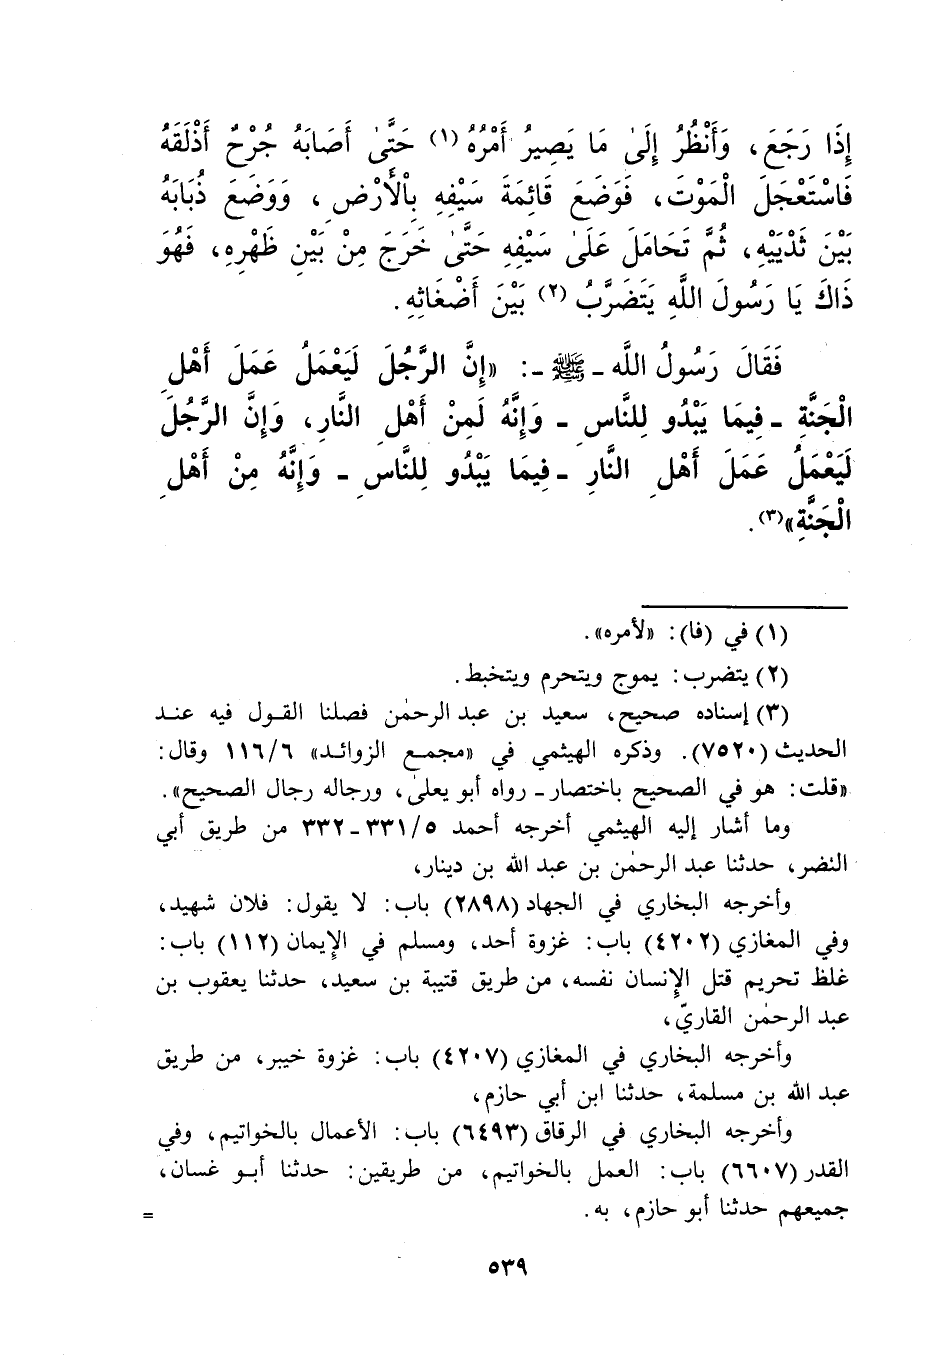 إِذَا رَجَعَ، وَأَنْظُرُ إِلَىٰ مَا يَصِيرُ أَمْرُهُ (١) حَتَّىٰ أَصَابَهُ جُرْحٌ أَذْلَقَهُ
فَاسْتَعْجَلَ الْمَوْتَ، فَوَضَعَ قَائِمَةَ سَيْفِهِ بِالْأَرْضِ، وَوَضَعَ ذُبَابَهُ
بَيْنَ ثَدْيَيْهِ، ثُمَّ تَحَامَلَ عَلَىٰ سَيْفِهِ حَتَّىٰ خَرَجَ مِنْ بَيْنِ ظَهْرِهِ، فَهُوَ
ذَاكَ يَا رَسُولَ اللَّهِ يَتَضَرَّبُ (٢) بَيْنَ أَضْغَاثِهِ.
فَقَالَ رَسُولُ اللَّهِ ـ ﷺ ـ: «إِنَّ الرَّجُلَ لَيَعْمَلُ عَمَلَ أَهْلِ
الْجَنَّةِ ـ فِيمَا يَبْدُو لِلنَّاسِ ـ وَإِنَّهُ لَمِنْ أَهْلِ النَّارِ، وَإِنَّ الرَّجُلَ
لَيَعْمَلُ عَمَلَ أَهْلِ النَّارِ ـ فِيمَا يَبْدُو لِلنَّاسِ ـ وَإِنَّهُ مِنْ أَهْلِ
الْجَنَّةِ»(٣).
(١) في (فا): «لأمره».
(٢) يتضرب: يموج ويتحرم ويتخبط.
(٣) إسناده صحيح، سعيد بن عبد الرحمٰن فصلنا القول فيه عند
الحديث (٧٥٢٠). وذكره الهيثمي في «مجمع الزوائد» ١١٦/٦ وقال:
«قلت: هو في الصحيح باختصار ـ رواه أبو يعلىٰ، ورجاله رجال الصحيح».
وما أشار إليه الهيثمي أخرجه أحمد ٣٣١/٥ ـ ٣٣٢ من طريق أبي
النضر، حدثنا عبد الرحمٰن بن عبد الله بن دينار،
وأخرجه البخاري في الجهاد (٢٨٩٨) باب: لا يقول: فلان شهيد،
وفي المغازي (٤٢٠٢) باب: غزوة أحد، ومسلم في الإيمان (١١٢) باب:
غلظ تحريم قتل الإنسان نفسه، من طريق قتيبة بن سعيد، حدثنا يعقوب بن
عبد الرحمٰن القاريّ،
وأخرجه البخاري في المغازي (٤٢٠٧) باب: غزوة خيبر، من طريق
عبد الله بن مسلمة، حدثنا ابن أبي حازم،
وأخرجه البخاري في الرقاق (٦٤٩٣) باب: الأعمال بالخواتيم، وفي
القدر (٦٦٠٧) باب: العمل بالخواتيم، من طريقين: حدثنا أبو غسان،
جميعهم حدثنا أبو حازم، به. =
٥٣٩